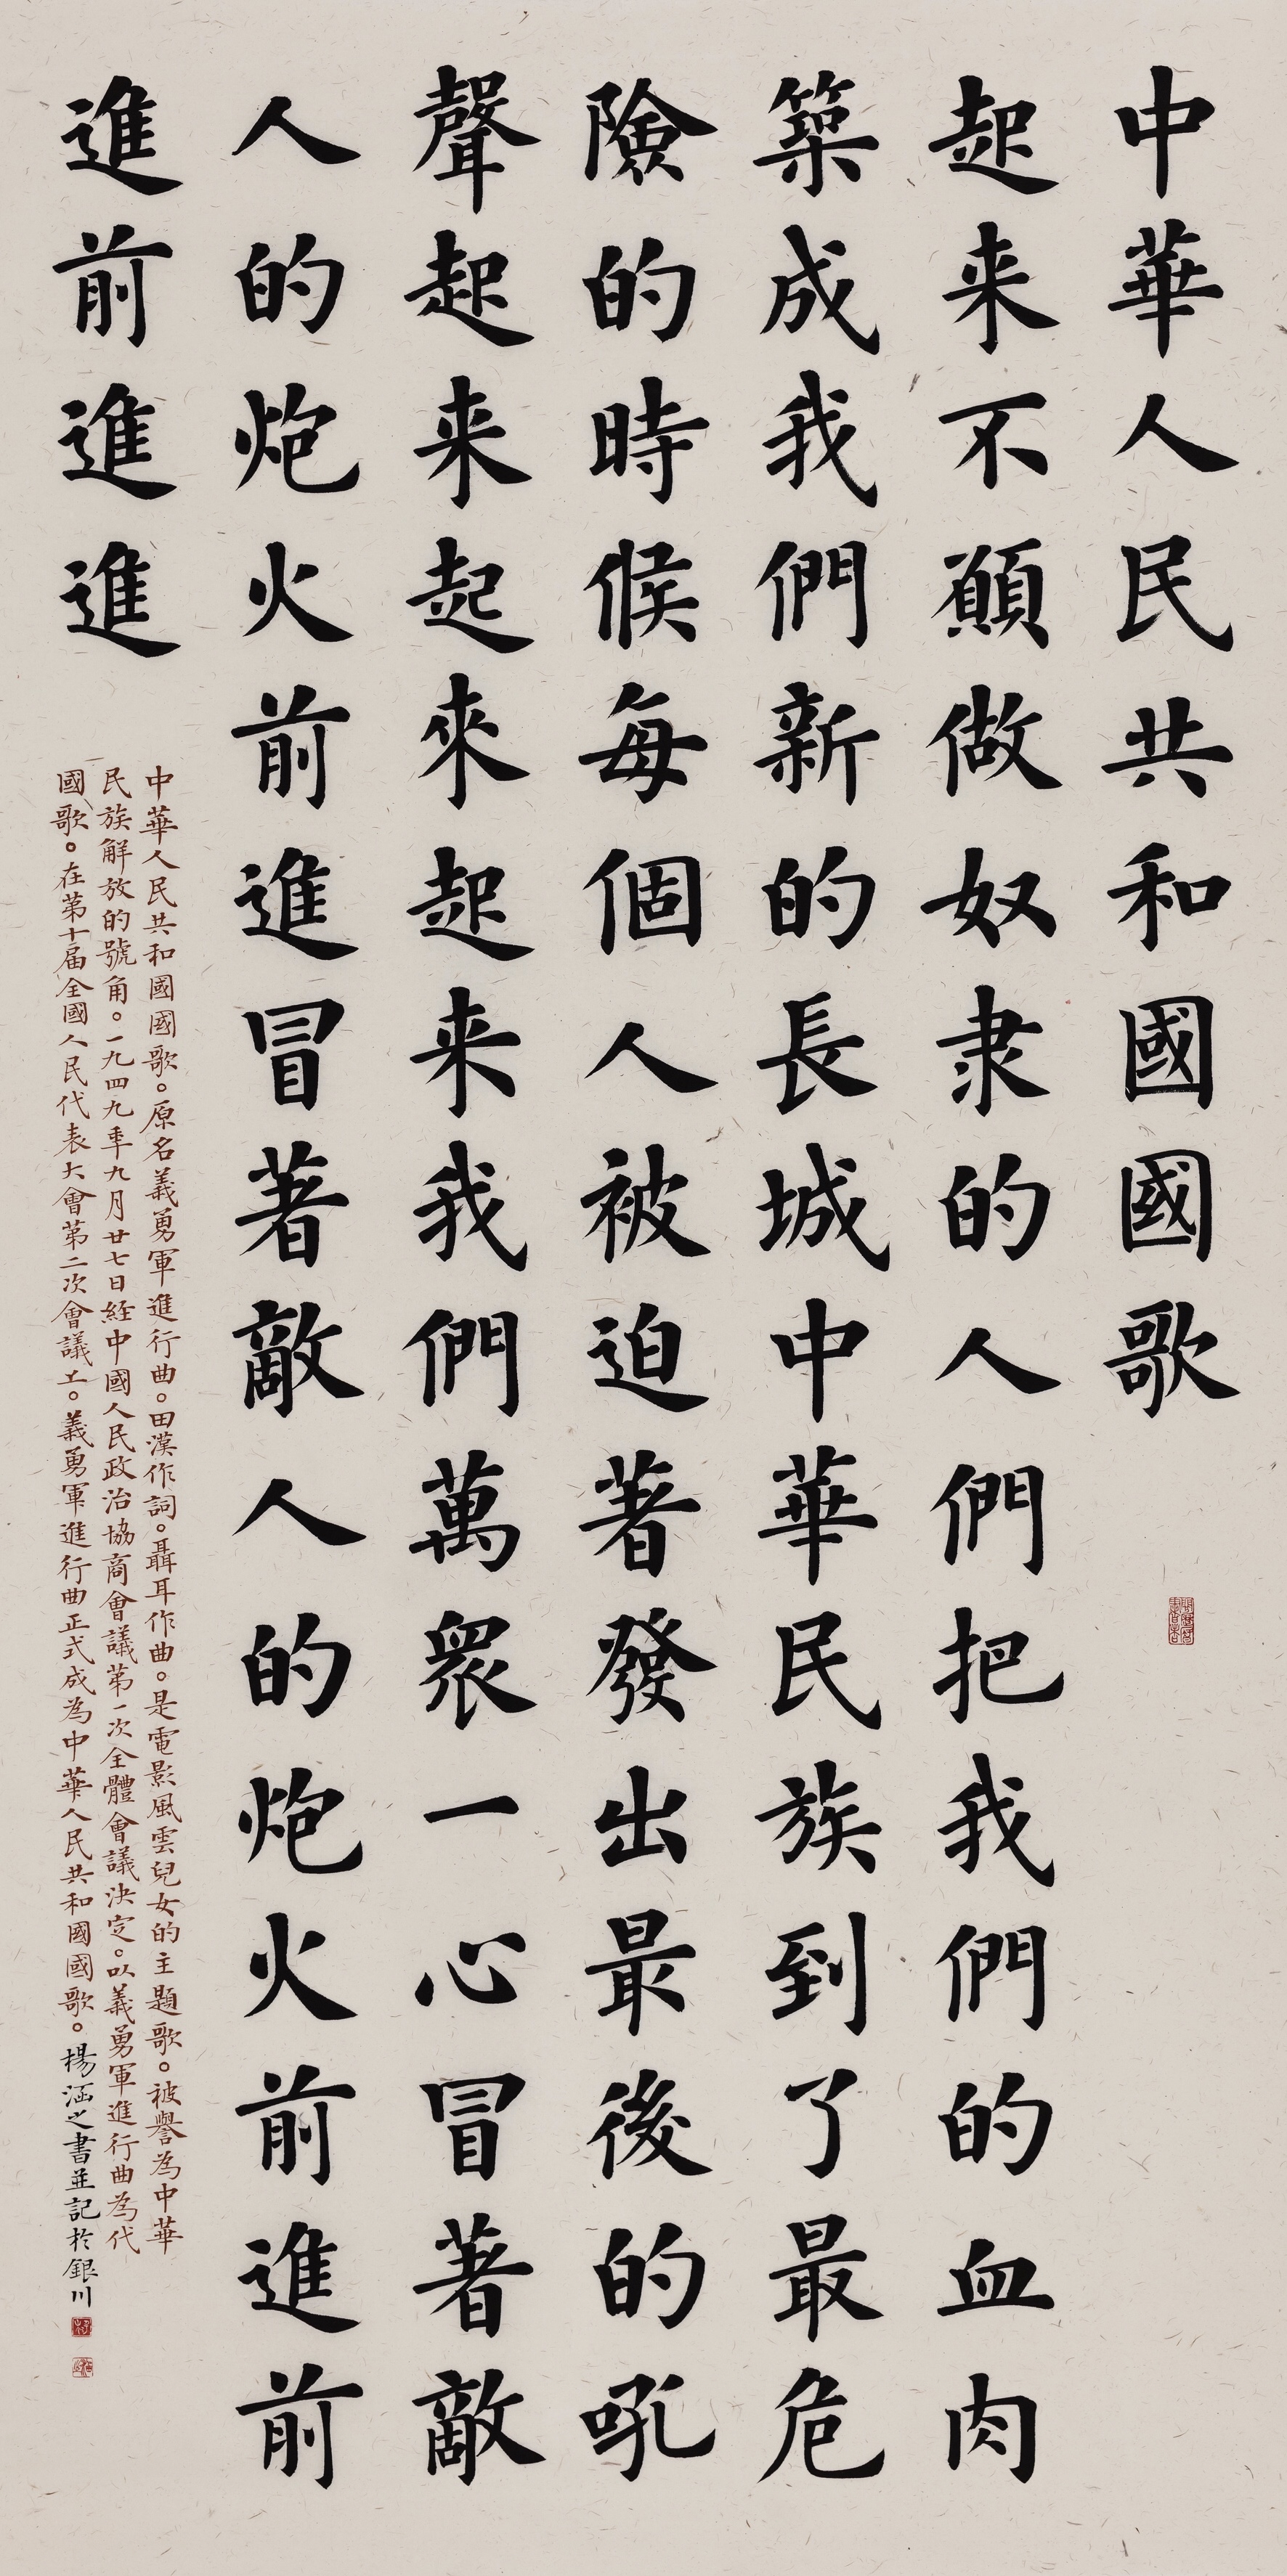 中華人民共和國國歌
起来不願做奴隶的人們把我們的血肉
築成我們新的長城中華民族到了最危
險的時候每個人被迫著發出最後的吼
聲起来起來起来我們萬衆一心冒著敵
人的炮火前進冒著敵人的炮火前進前
進前進進
中華人民共和國國歌。原名義勇軍進行曲。田漢作詞。聶耳作曲。是電影風雲兒女的主題歌。被譽為中華
民族解放的號角。一九四九年九月廿七日經中國人民政治協商會議第一次全體會議決定。以義勇軍進行曲為代
國歌。在第十届全國人民代表大會第二次會議上。義勇軍進行曲正式成為中華人民共和國國歌。楊涵之書並記於銀川